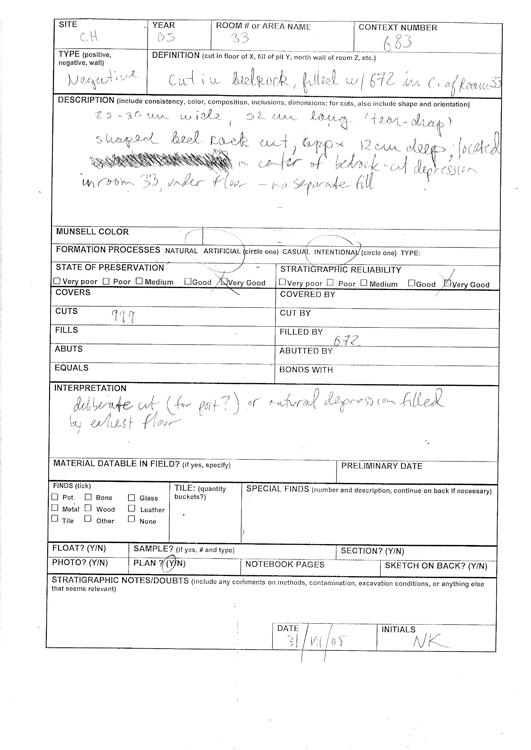 SITE YEAR ROOM # or AREA NAME CONTEXT NUMBER
CH 05 33 683
TYPE (positive, negative, wall) DEFINITION (cut in floor of X, fill of pit Y, north wall of room Z, etc.)
Negative Cut in bedrock, filled w/ 672 in C. of Room 33
DESCRIPTION (include consistency, color, composition, inclusions, dimensions; for cuts, also include shape and orientation)
25-30 cm wide, 52 cm long 'tear-drop'
shaped bed rock cut, appx 12cm deep; located
in center of bedrock-cut depression
in room 33, under floor - no separate fill
MUNSELL COLOR
FORMATION PROCESSES NATURAL ARTIFICIAL (circle one) CASUAL INTENTIONAL (circle one) TYPE:
STATE OF PRESERVATION STRATIGRAPHIC RELIABILITY
Very poor Poor Medium Good Very Good Very poor Poor Medium Good Very Good
COVERS COVERED BY
CUTS 999 CUT BY
FILLS FILLED BY 672
ABUTS ABUTTED BY
EQUALS BONDS WITH
INTERPRETATION
deliberate cut (for post?) or natural depression filled
by earliest floor
MATERIAL DATABLE IN FIELD? (if yes, specify) PRELIMINARY DATE
FINDS (tick) TILE: (quantity buckets?) SPECIAL FINDS (number and description, continue on back if necessary)
Pot Bone Glass
Metal Wood Leather
Tile Other None
FLOAT? (Y/N) SAMPLE? (if yes, # and type) SECTION? (Y/N)
PHOTO? (Y/N) PLAN ? (Y/N) NOTEBOOK PAGES SKETCH ON BACK? (Y/N)
STRATIGRAPHIC NOTES/DOUBTS (include any comments on methods, contamination, excavation conditions, or anything else
that seems relevant)
DATE INITIALS
31/VII/05 NK